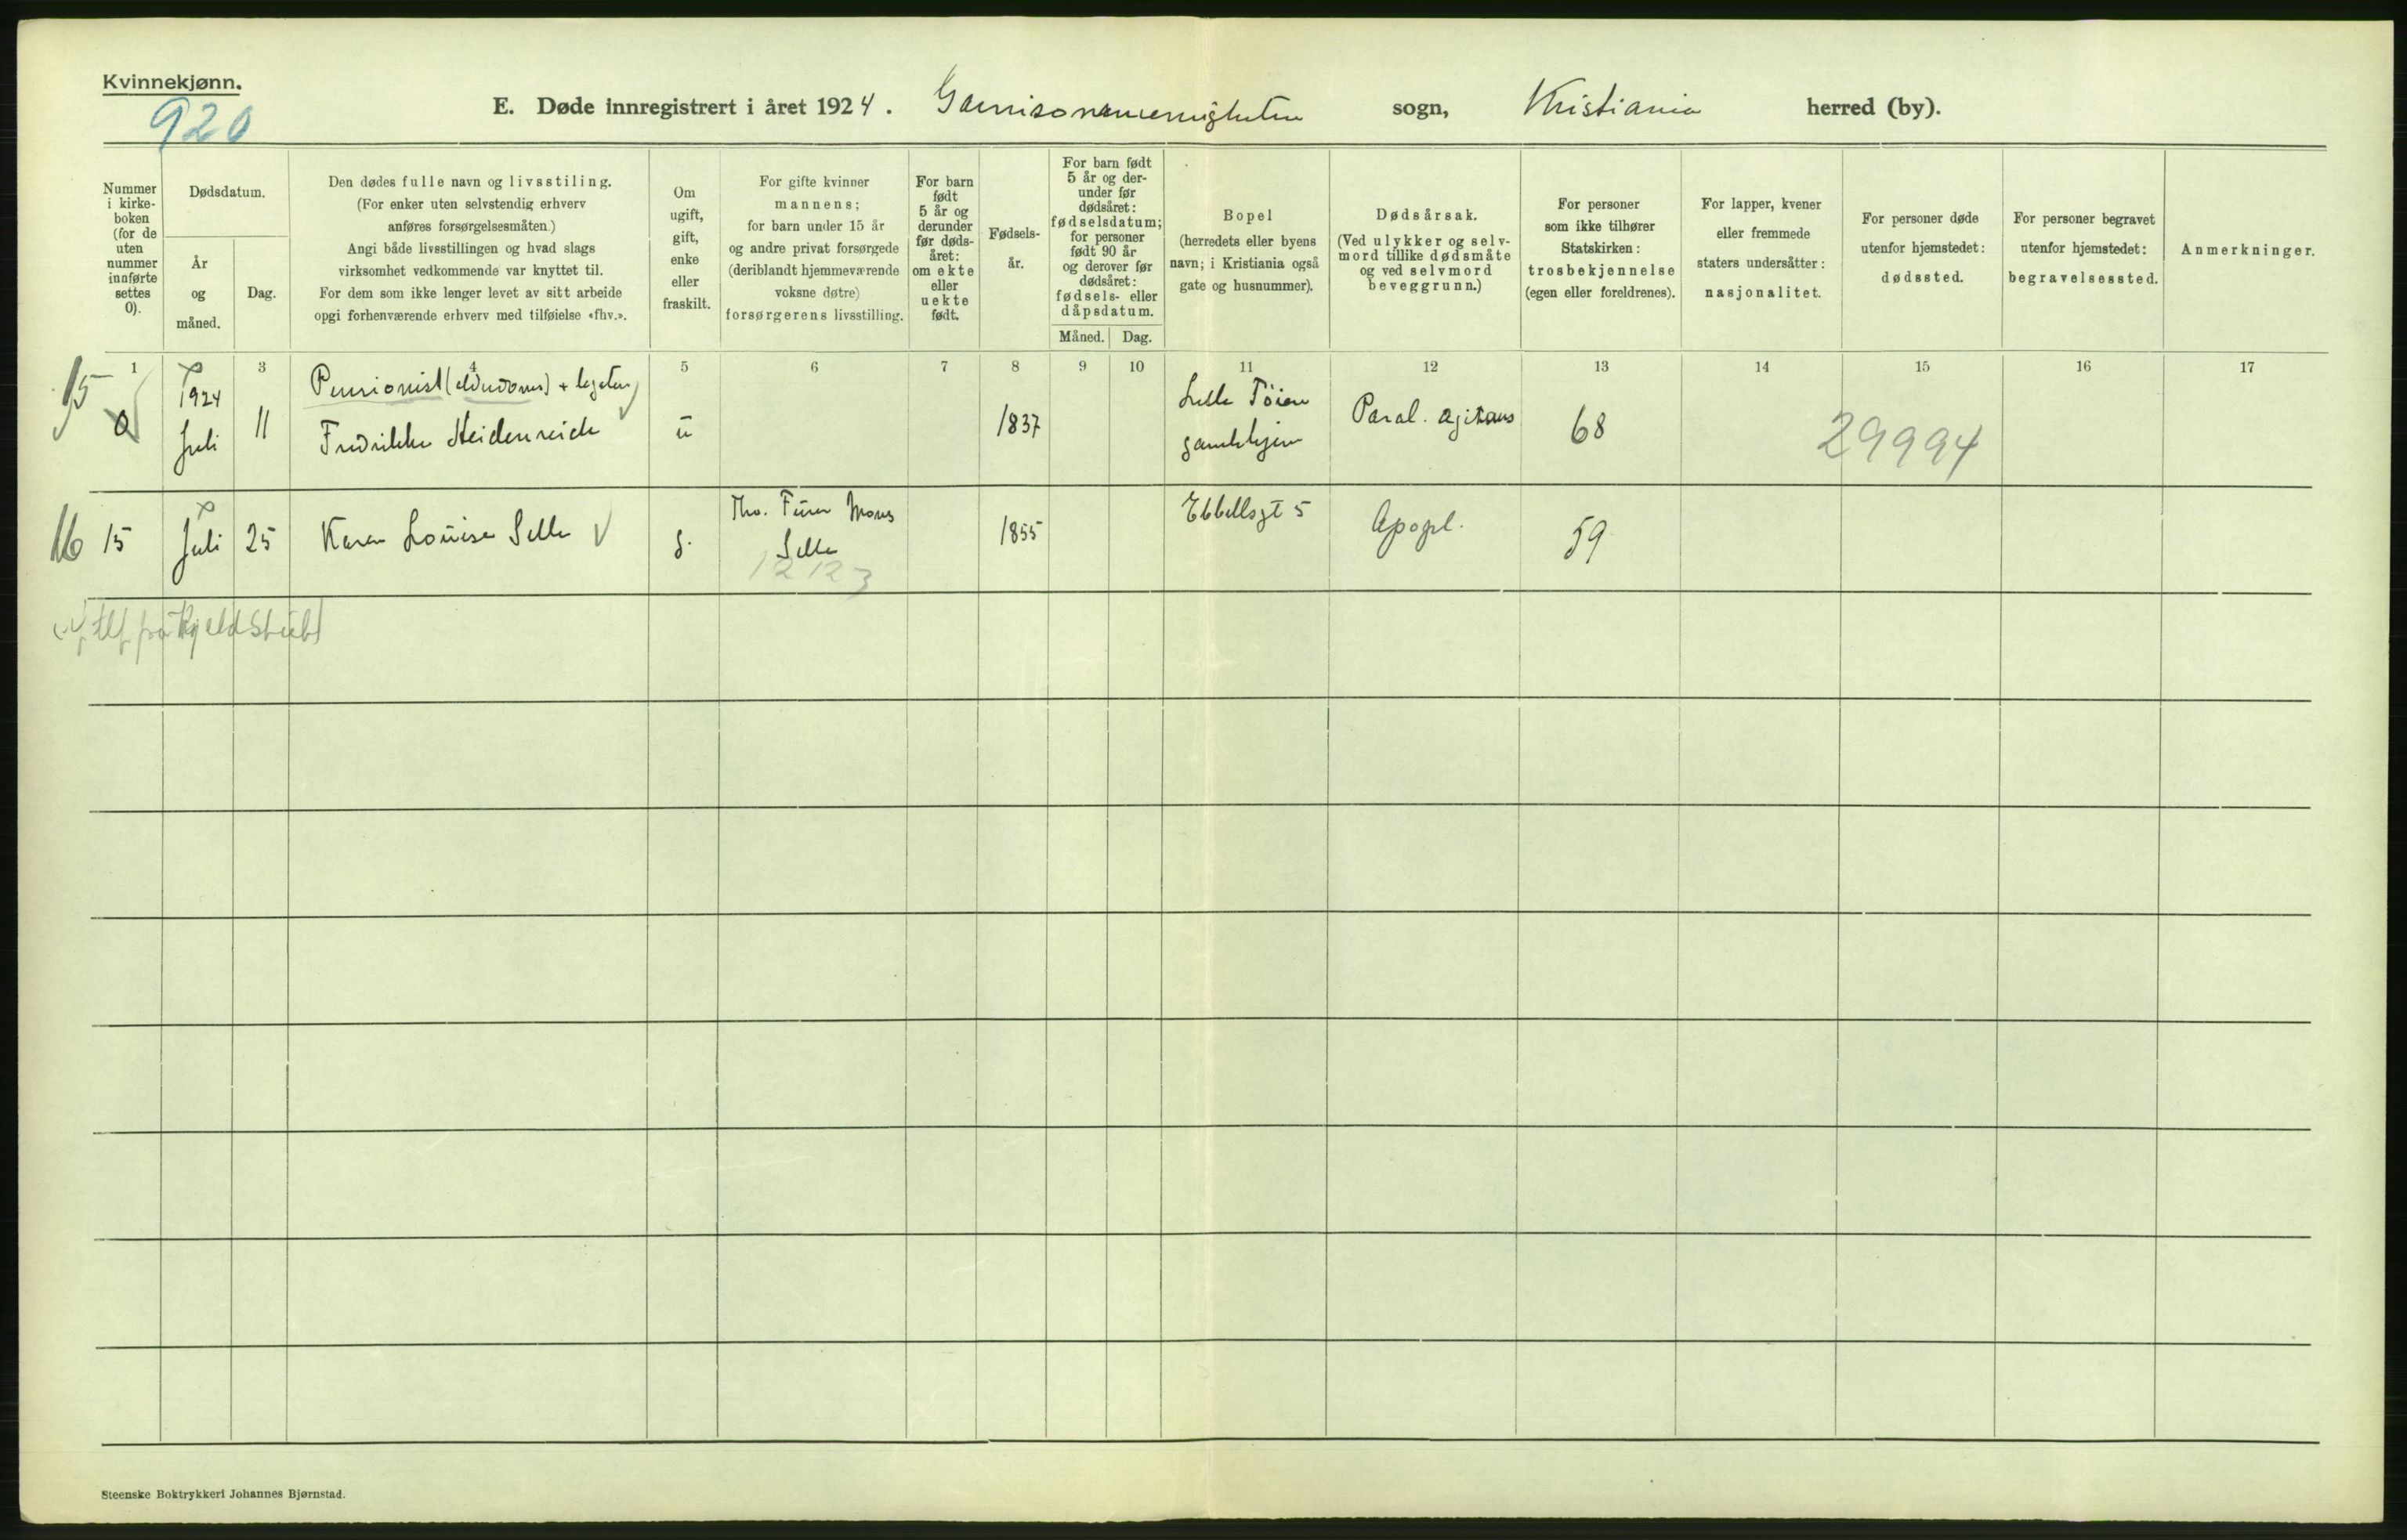 Kvinnekjønn.
920
E. Døde innregistrert i året 1924. Garnisonsmenigheten sogn, Kristiania herred (by).
Nummer i kirke-boken (for de uten nummer innførte settes 0).
Dødsdatum.
År og måned.
Dag.
Den dødes fulle navn og livsstiling.
(For enker uten selvstendig erhverv
anføres forsørgelsesmåten.)
Angi både livsstillingen og hvad slags
virksomhet vedkommende var knyttet til.
For dem som ikke lenger levet av sitt arbeide
opgi forhenværende erhverv med tilføielse «fhv.».
Om
ugift,
gift,
enke
eller
fraskilt.
For gifte kvinner
mannens;
for barn under 15 år
og andre privat forsørgede
(deriblandt hjemmeværende
voksne døtre)
forsørgerens livsstilling.
For barn
født
5 år og
derunder
før døds-
året:
om ekte
eller
uekte
født.
Fødsels-
år.
For barn født
5 år og der-
under før
dødsåret:
fødselsdatum;
for personer
født 90 år
og derover før
dødsåret:
fødsels- eller
dåpsdatum.
Måned. Dag.
Bopel
(herredets eller byens
navn; i Kristiania også
gate og husnummer).
Dødsårsak.
(Ved ulykker og selv-
mord tillike dødsmåte
og ved selvmord
beveggrunn.)
For personer
som ikke tilhører
Statskirken:
trosbekjennelse
(egen eller foreldrenes).
For lapper, kvener
eller fremmede
staters undersåtter:
nasjonalitet.
For personer døde
utenfor hjemstedet:
dødssted.
For personer begravet
utenfor hjemstedet:
begravelsessted.
Anmerkninger.
1 3 4 5 6 7 8 9 10 11 12 13 14 15 16 17
15 0 1924 Juli 11
Pensionist
Fredrikke Heidenreich
u 1837
Lille Tøien
gamlehjem
Paral. agitans
68
29994
16 15 Juli 25 Karen Louise Selle g.
Selle
12123
1855 Ebbellsgt 5 Apopl. 59
tlf fra Kjeldstub
Steenske Boktrykkeri Johannes Bjørnstad.